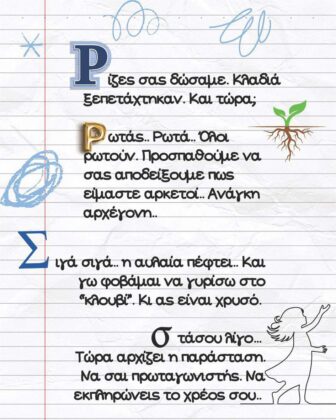 Ρίζες σας δώσαμε. Κλαδιά
ξεπετάχτηκαν. Και τώρα;
Ρωτάς.. Ρωτά.. Όλοι
ρωτούν. Προσπαθούμε να
σας αποδείξουμε πως
είμαστε αρκετοί.. Ανάγκη
αρχέγονη..
Σιγά σιγά.. η αυλαία πέφτει.. Και
γω φοβάμαι να γυρίσω στο
"κλουβί". Κι ας είναι χρυσό.
Στάσου λίγο...
Τώρα αρχίζει η παράσταση.
Να σαι πρωταγωνιστής. Να
εκπληρώνεις το χρέος σου..